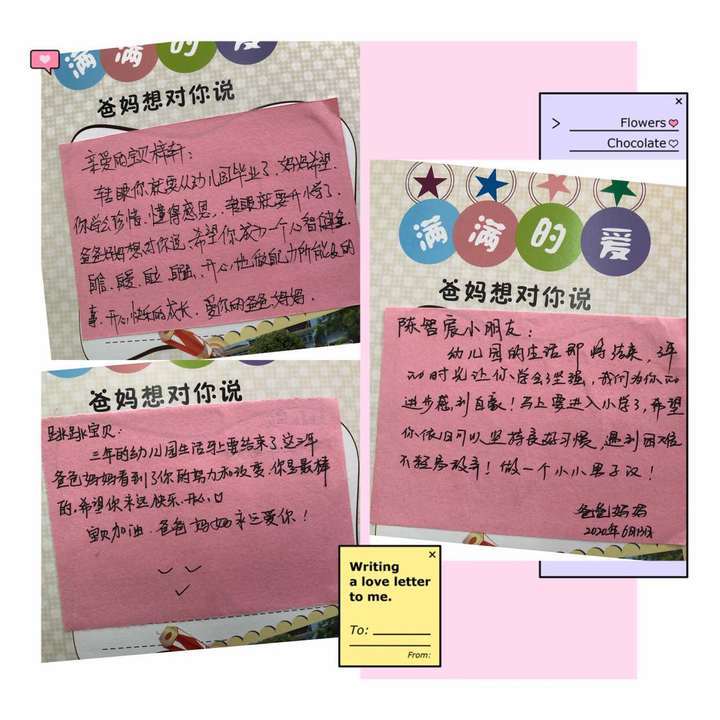 满满的爱
爸妈想对你说
亲爱的宝贝梓轩:
转眼你就要从幼儿园毕业了,妈妈希望
你学会珍惜,懂得感恩,转眼就要升小学了,
爸爸妈妈想对你说,希望你成为一个心智健全
开心地做自己力所能及的
事,开心快乐的成长。爱你的爸爸妈妈。
爸妈想对你说
跳跳宝贝:
三年的幼儿园生活马上要结束了,这三年
爸爸妈妈看到了你的努力和改变,你是最棒
的,希望你永远快乐、开心♡
宝贝加油,爸爸妈妈永远爱你!
Flowers
Chocolate
满满的爱
爸妈想对你说
陈智宸小朋友:
幼儿园的生活即将结束,3年
的时光让你学会坚强,我们为你的
进步感到自豪!马上要进入小学了,希望
你依旧可以坚持良好习惯,遇到困难
不轻易放弃!做一个小小男子汉!
爸爸妈妈
2020年6月
Writing
a love letter
to me.
To:
From: